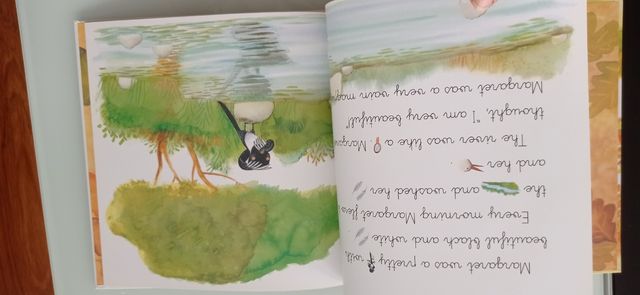 Margaret was a pretty
beautiful black and white
Every morning Margaret
the and washed her
and her .
The river was like a . Margar
thought, "I am very beautiful!"
Margaret was a very vain mag